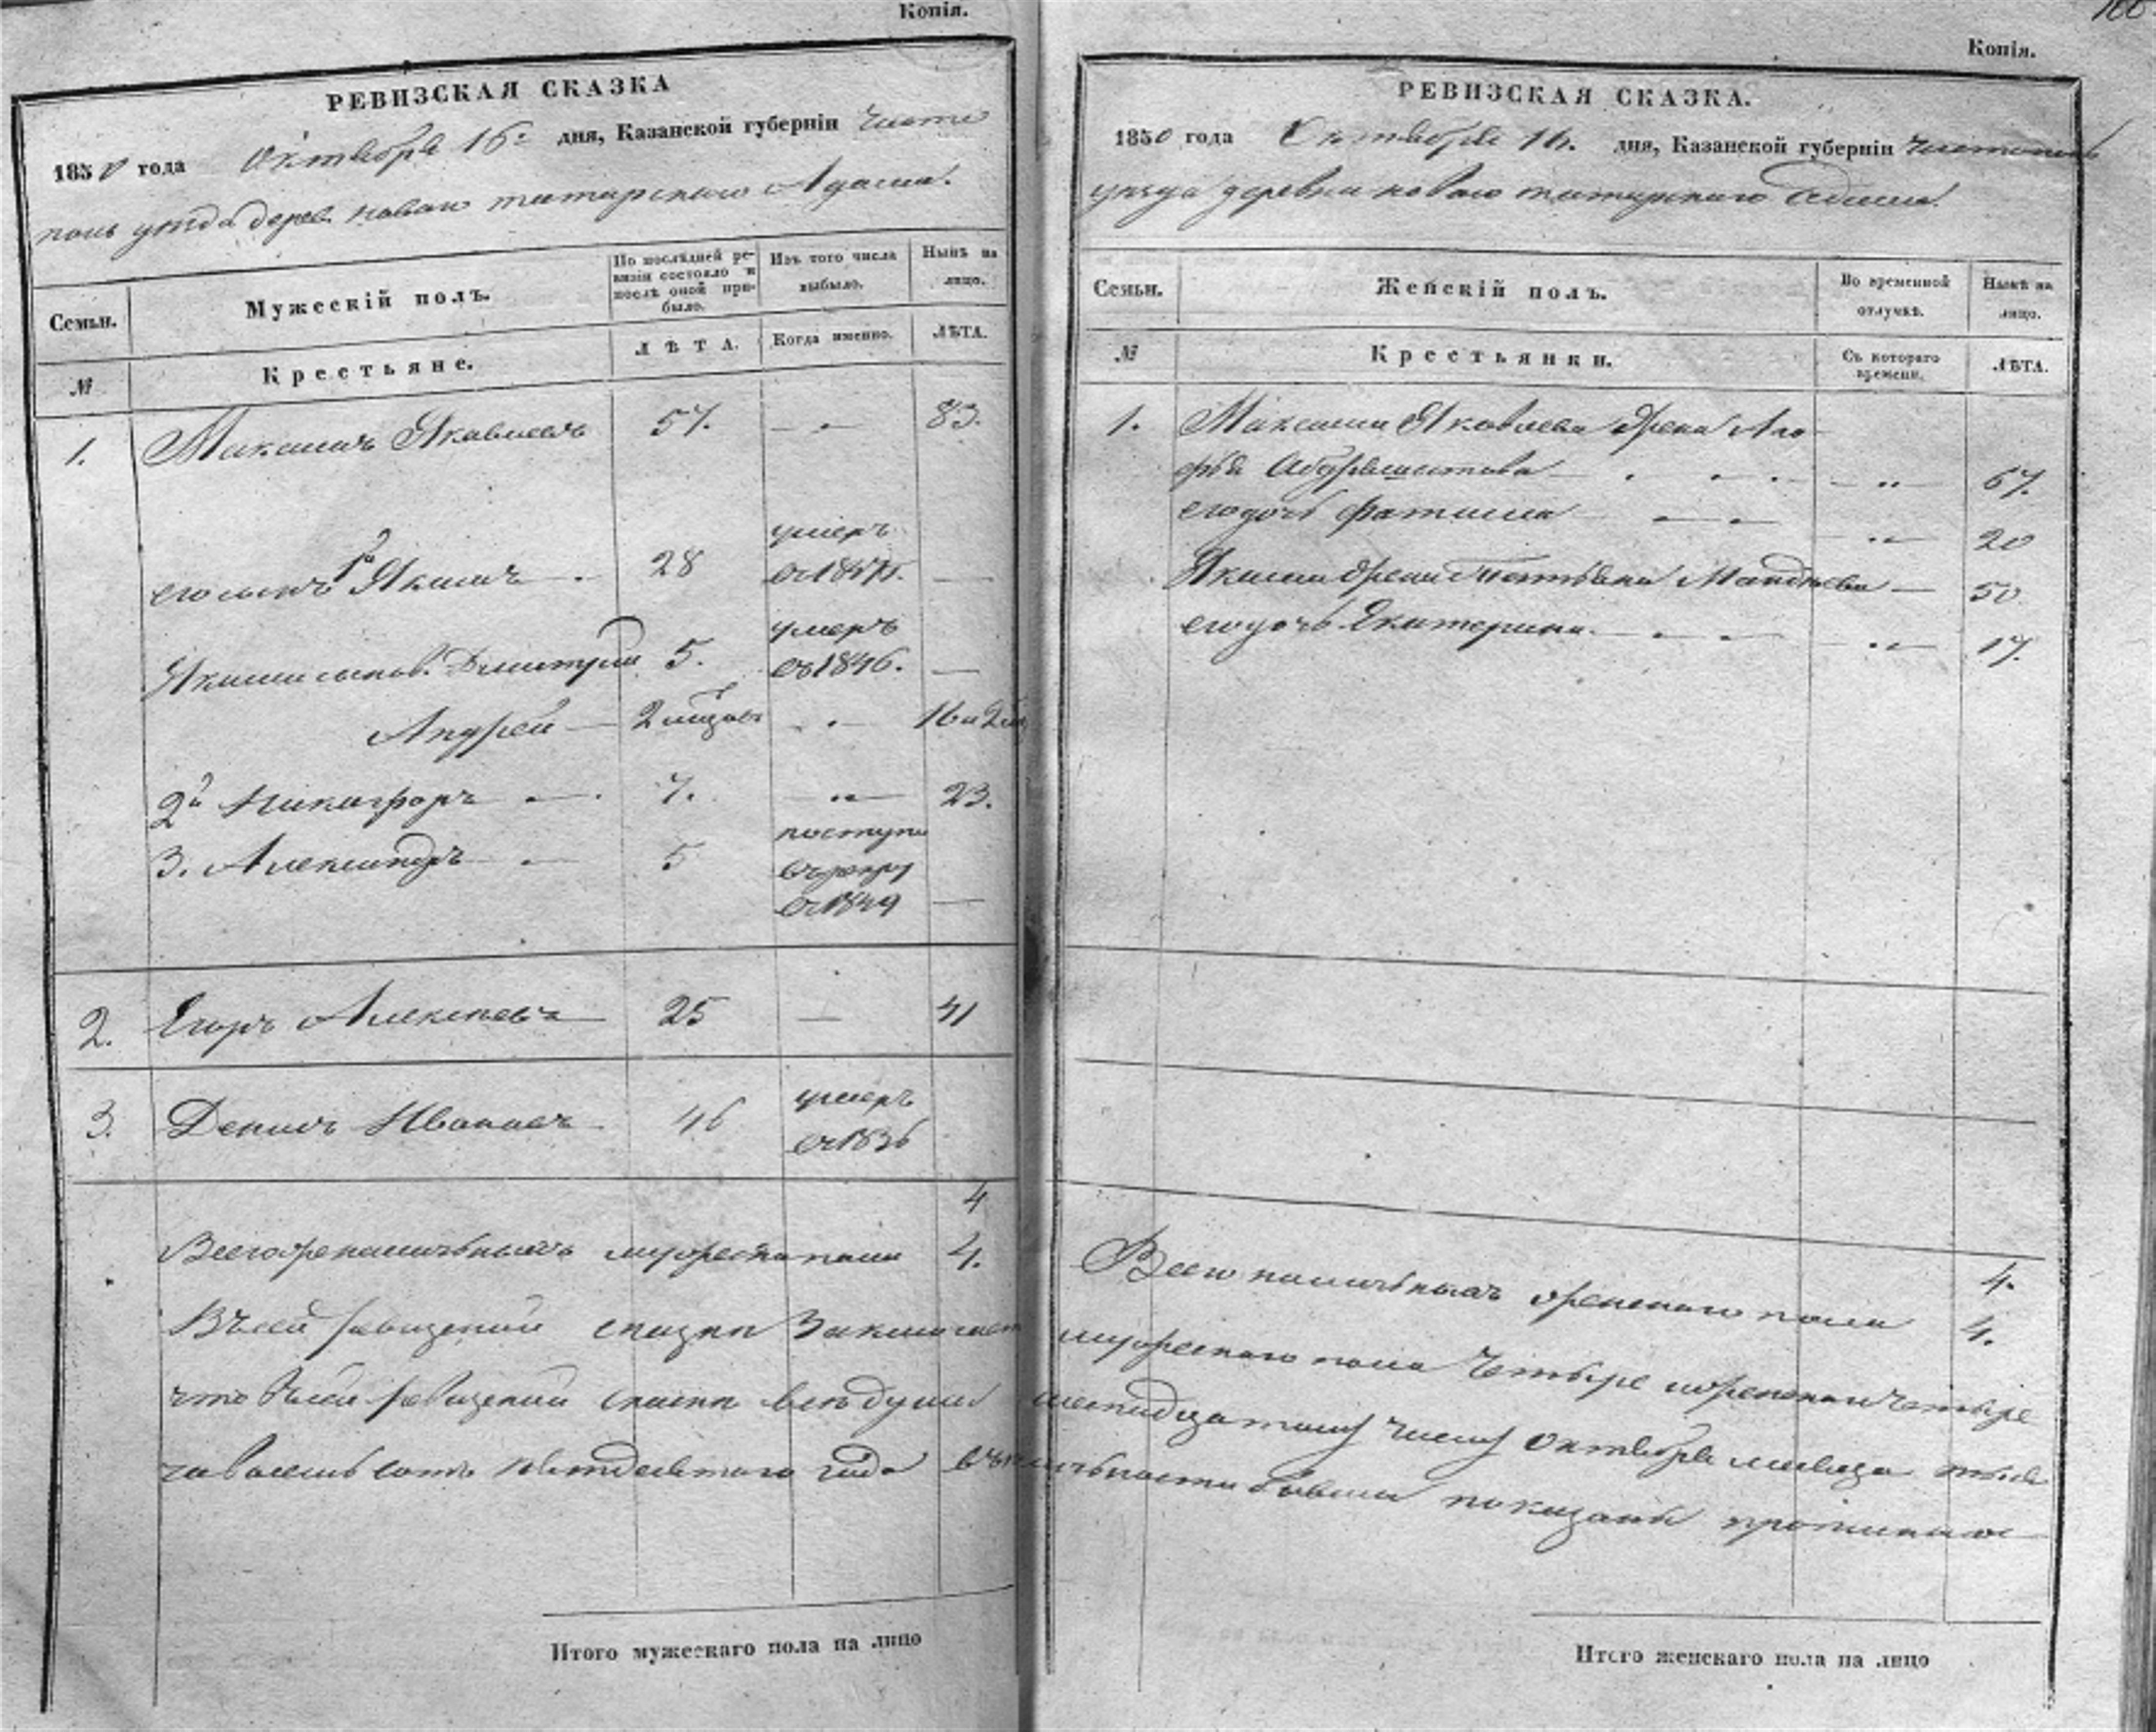 Копія.
РЕВИЗСКАЯ СКАЗКА
1850 года Октября 16: дня, Казанской губерніи Чисто
поль уѣзда дерев. новаго татарскаго Адама.
Семьи.
Мужескій полъ.
По послѣдней ре-
визіи состояло и
послѣ оной при-
было.
Изъ того числа
выбыло.
Нынѣ на
лицо.
№
Крестьяне.
ЛѢТА.
Когда именно.
ЛѢТА.
1. Максимъ Яковлевъ 57. 83.
его сынъ 1й Якимъ 28 умеръ
въ 1847.
Якима сынов. Дмитрій 5. умеръ
въ 1846.
Андрей 2 мѣсяц. 16 и 2
2й Никифоръ 7. 23.
3. Александръ 5 поступи
въ рекру
въ 1849
2. Егоръ Алексѣевъ 25 41
3. Денисъ Ивановъ 46 умеръ
въ 1836
4
Всего наличныхъ мужеска пола 4.
Въ сей ревизской сказки Заключает
что въ сей ревизской сказки всѣ души
восемь сотъ пятдесятаго года въ на
Итого мужескаго пола на лицо
Копія.
РЕВИЗСКАЯ СКАЗКА.
1850 года Октября 16. дня, Казанской губерніи Чистополь
уѣзда деревни новаго татарскаго Адама.
Семьи.
Женскій полъ.
Во временной
отлучкѣ.
Нынѣ на
лицо.
№
Крестьянки.
Съ котораго
времени.
ЛѢТА.
1. Максима Яковлева жена Ма-
рья 67.
его дочь Фатима 20
Якима жена Татьяна Матвѣева 50
его дочь Екатерина. 17.
4.
Всего наличныхъ женскаго пола 4.
мужескаго пола Четыре и женскаго Четыре
шеснадцатому числу Октября мѣсяца тыся
личности бывши показаны
Итого женскаго пола на лицо